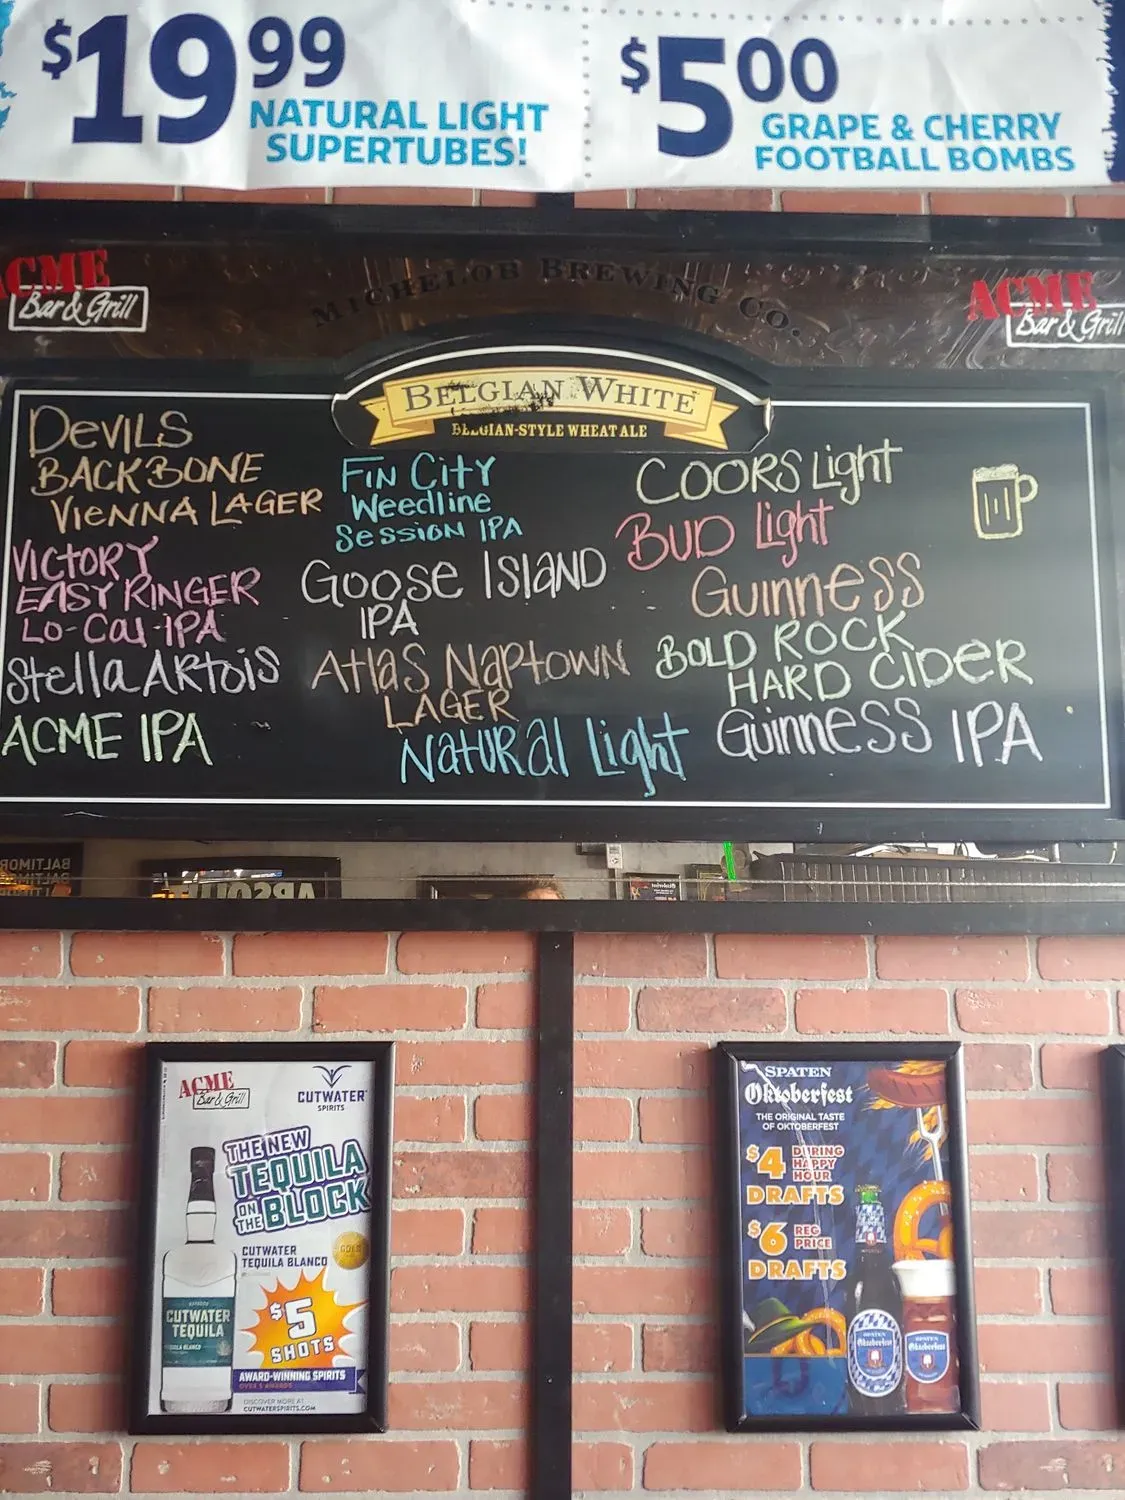 $19 99
NATURAL LIGHT
SUPERTUBES!
$5 00
GRAPE & CHERRY
FOOTBALL BOMBS
ACME
Bar & Grill
MICHELOB BREWING CO.
ACME
Bar & Grill
BELGIAN WHITE
BELGIAN-STYLE WHEAT ALE
DEVILS
BACKBONE
VIENNA LAGER
VICTORY
EASY RINGER
LO-CAL IPA
Stella ARTois
ACME IPA
FIN CITY
Weedline
SESSION IPA
GOOSE ISLAND
IPA
ATLAS NAPTOWN
LAGER
NATURAL Light
COORS Light
BUD Light
GUINNESS
BOLD ROCK
HARD CIDER
GUINNESS IPA
BALTIMOR
BALTIM
ABSOLUT
ACME
Bar & Grill
CUTWATER
SPIRITS
THE NEW
TEQUILA
ON THE BLOCK
CUTWATER
TEQUILA BLANCO
GOLD
$5
SHOTS
CUTWATER
TEQUILA
AWARD-WINNING SPIRITS
DISCOVER MORE AT
CUTWATERSPIRITS.COM
SPATEN
Oktoberfest
THE ORIGINAL TASTE
OF OKTOBERFEST
$4 DURING HAPPY HOUR
DRAFTS
$6 REG PRICE
DRAFTS
SPATEN
Oktoberfest
SPATEN
Oktoberfest